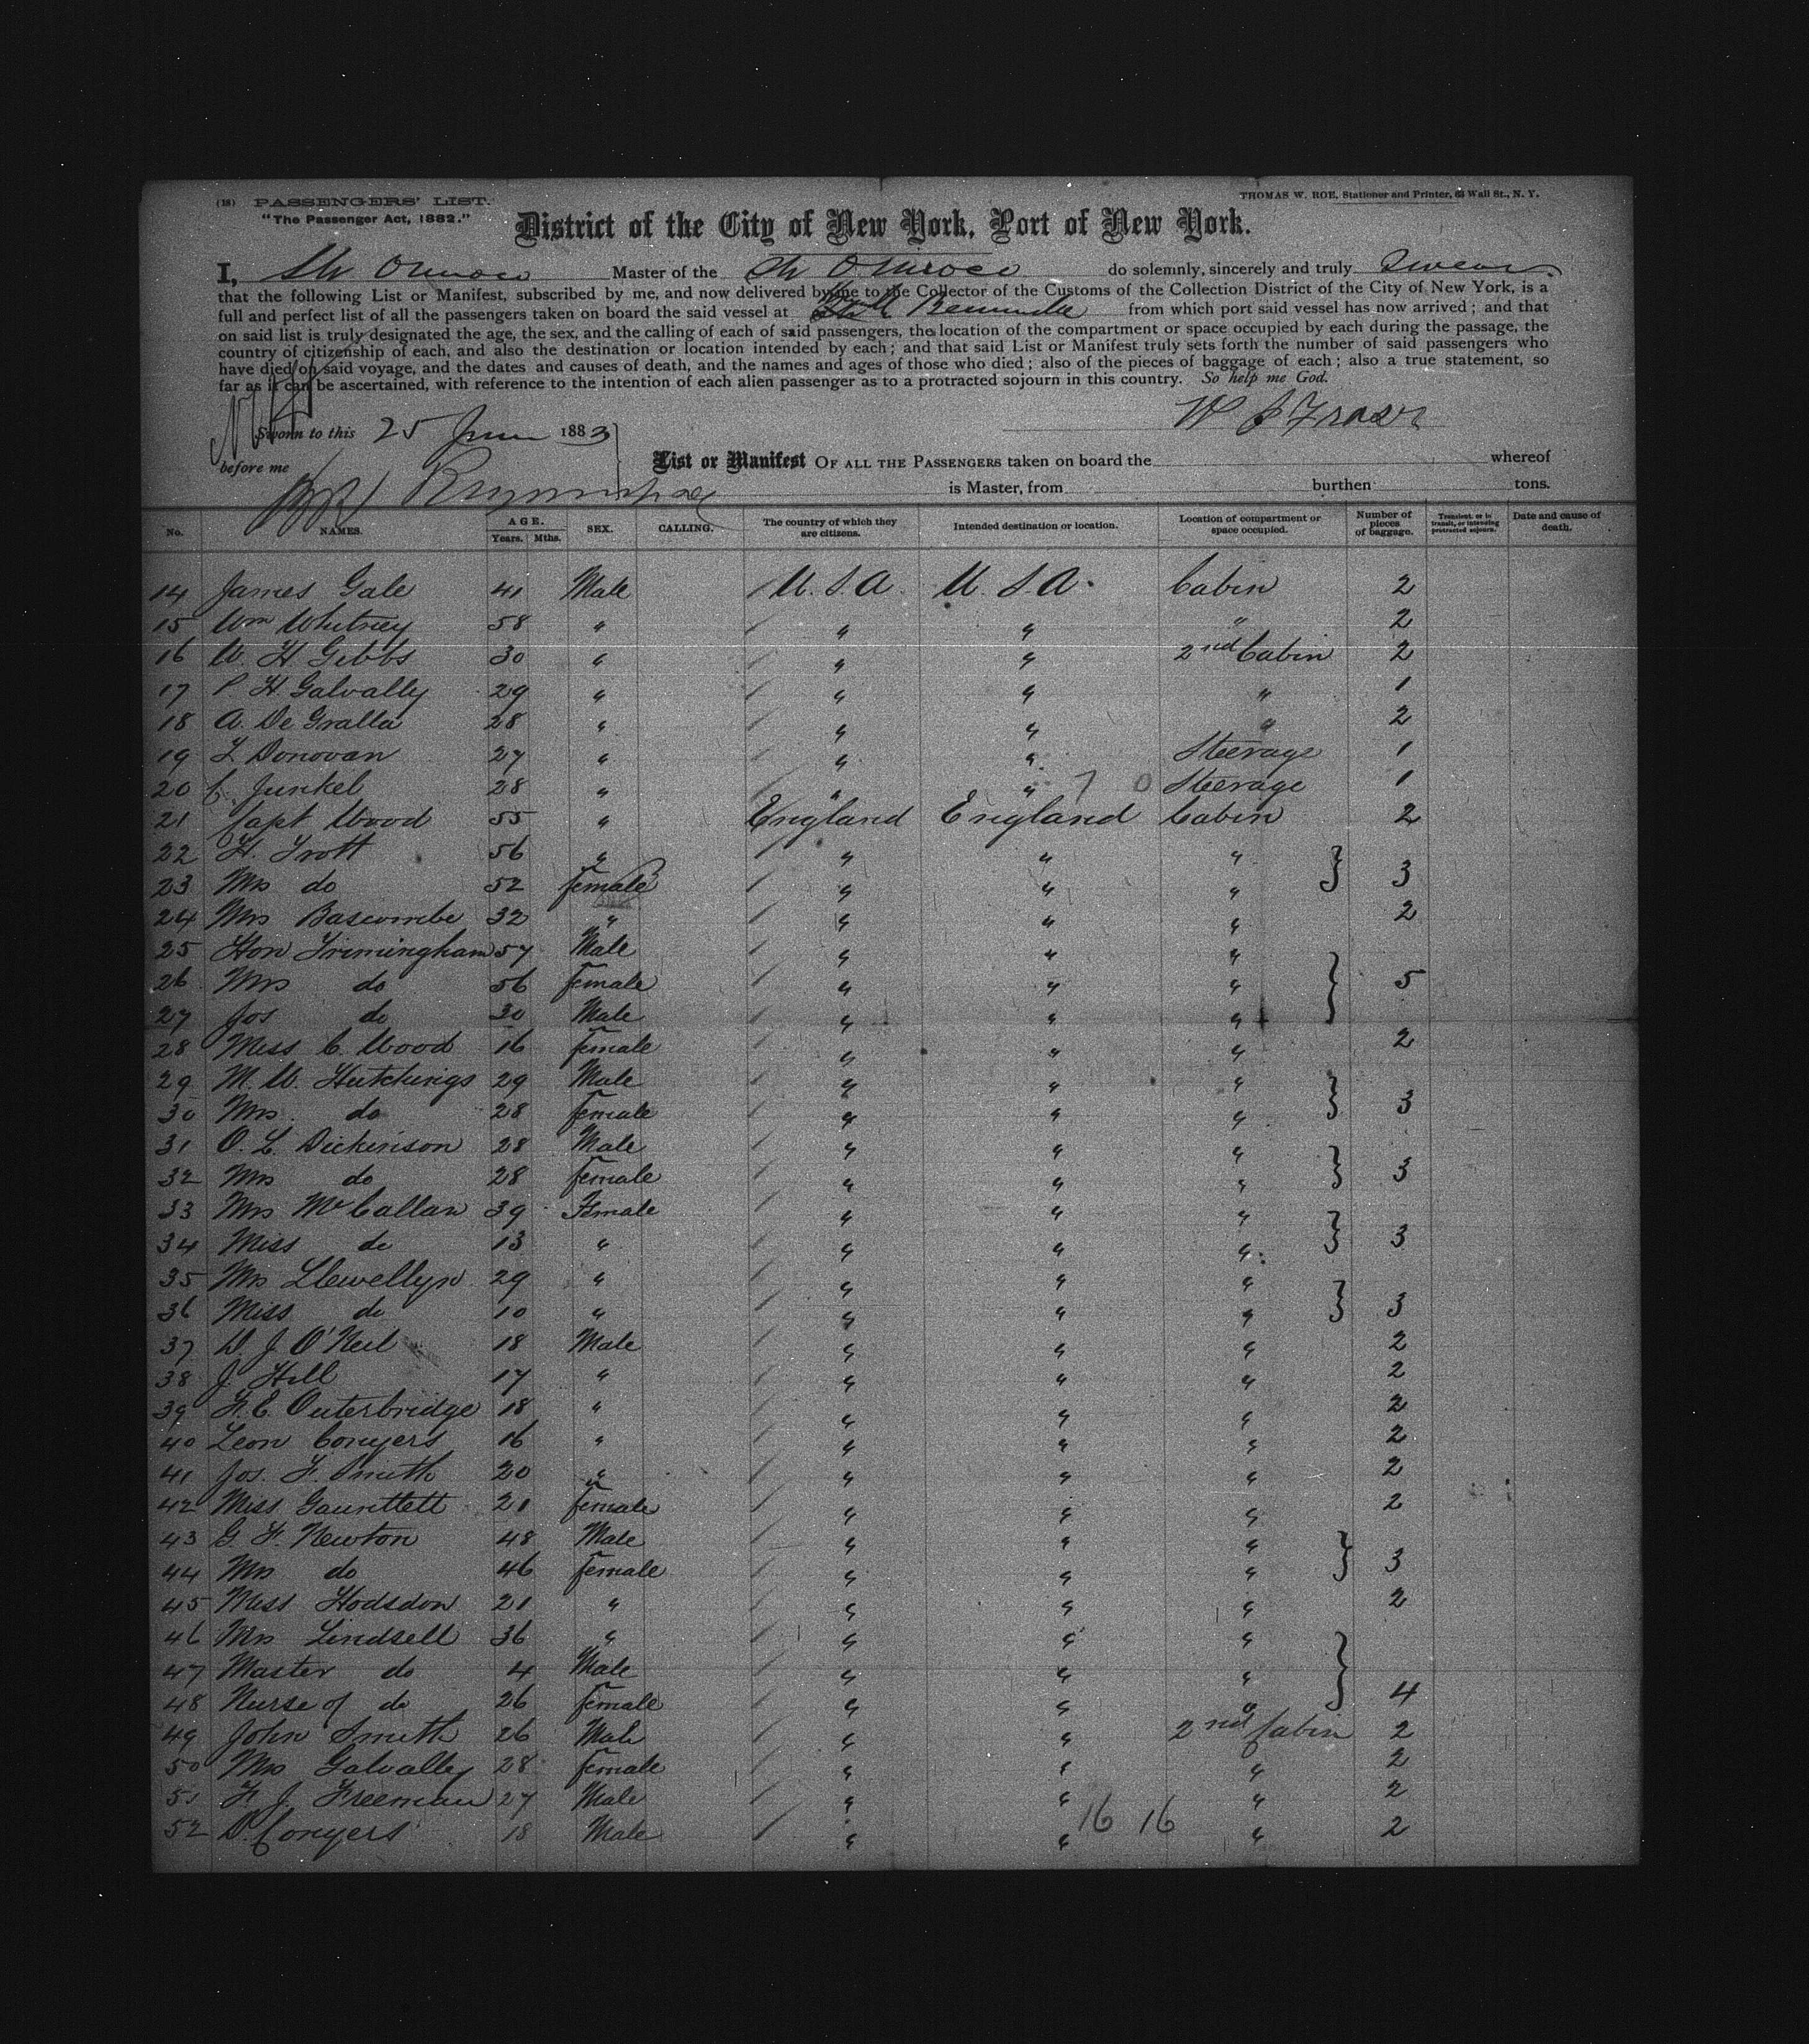 (18) PASSENGERS' LIST.
"The Passenger Act, 1882."
THOMAS W. ROE, Stationer and Printer, 63 Wall St., N. Y.
District of the City of New York, Port of New York.
I, Str Orinoco Master of the Str Orinoco do solemnly, sincerely and truly swear
that the following List or Manifest, subscribed by me, and now delivered by me to the Collector of the Customs of the Collection District of the City of New York, is a
full and perfect list of all the passengers taken on board the said vessel at Bermuda from which port said vessel has now arrived; and that
on said list is truly designated the age, the sex, and the calling of each of said passengers, the location of the compartment or space occupied by each during the passage, the
country of citizenship of each, and also the destination or location intended by each; and that said List or Manifest truly sets forth the number of said passengers who
have died on said voyage, and the dates and causes of death, and the names and ages of those who died; also of the pieces of baggage of each; also a true statement, so
far as it can be ascertained, with reference to the intention of each alien passenger as to a protracted sojourn in this country. So help me God.
W J Fraser
Sworn to this 25 June 1883
before me
List or Manifest OF ALL THE PASSENGERS taken on board the whereof
is Master, from burthen tons.
No. NAMES. AGE. Years. Mths. SEX. CALLING. The country of which they are citizens. Intended destination or location. Location of compartment or space occupied. Number of pieces of baggage. Transient, or in transit, or intending protracted sojourn. Date and cause of death.
14 James Gale 41 Male U.S.A. U.S.A. Cabin 2
15 Wm Whitney 58 " " " " 2
16 W. H Gibbs 30 " " " 2nd Cabin 2
17 P H. Galvally 29 " " " " 1
18 A De Gralla 28 " " " " 2
19 L Donovan 27 " " " Steerage 1
20 C. Junkel 28 " " " 7 0 Steerage 1
21 Capt Wood 55 " England England Cabin 2
22 H. Trott 56 " " " "
23 Mrs do 52 female " " " 3
24 Mrs Bascombe 32 " " " " 2
25 Hon Trimingham 57 Male " " "
26 Mrs do 56 female " " " 5
27 Jos do 30 Male " " "
28 Miss C. Wood 16 female " " " 2
29 M. W. Hutchings 29 Male " " "
30 Mrs do 28 female " " " 3
31 O. L. Dickinson 28 Male " " "
32 Mrs do 28 female " " " 3
33 Mrs McCallan 39 Female " " "
34 Miss do 13 " " " " 3
35 Mrs Llewellyn 29 " " " "
36 Miss do 10 " " " " 3
37 D. J. O'Neil 18 Male " " " 2
38 J. Hill 17 " " " " 2
39 F. C. Outerbridge 18 " " " " 2
40 Leon Conyers 16 " " " " 2
41 Jos. F. Smith 20 " " " " 2
42 Miss Gauntlett 21 female " " " 2
43 G. F. Newton 48 Male " " "
44 Mrs do 46 female " " " 3
45 Miss Hodsdon 21 " " " " 2
46 Mrs Lindsell 36 " " " "
47 Master do 4 Male " " "
48 Nurse of do 26 female " " " 4
49 John Smith 26 Male " " 2nd Cabin 2
50 Mrs Galvalley 28 female " " " 2
51 F. J. Freeman 27 Male " " " 2
52 D. Conyers 18 Male " " 16 16 " 2